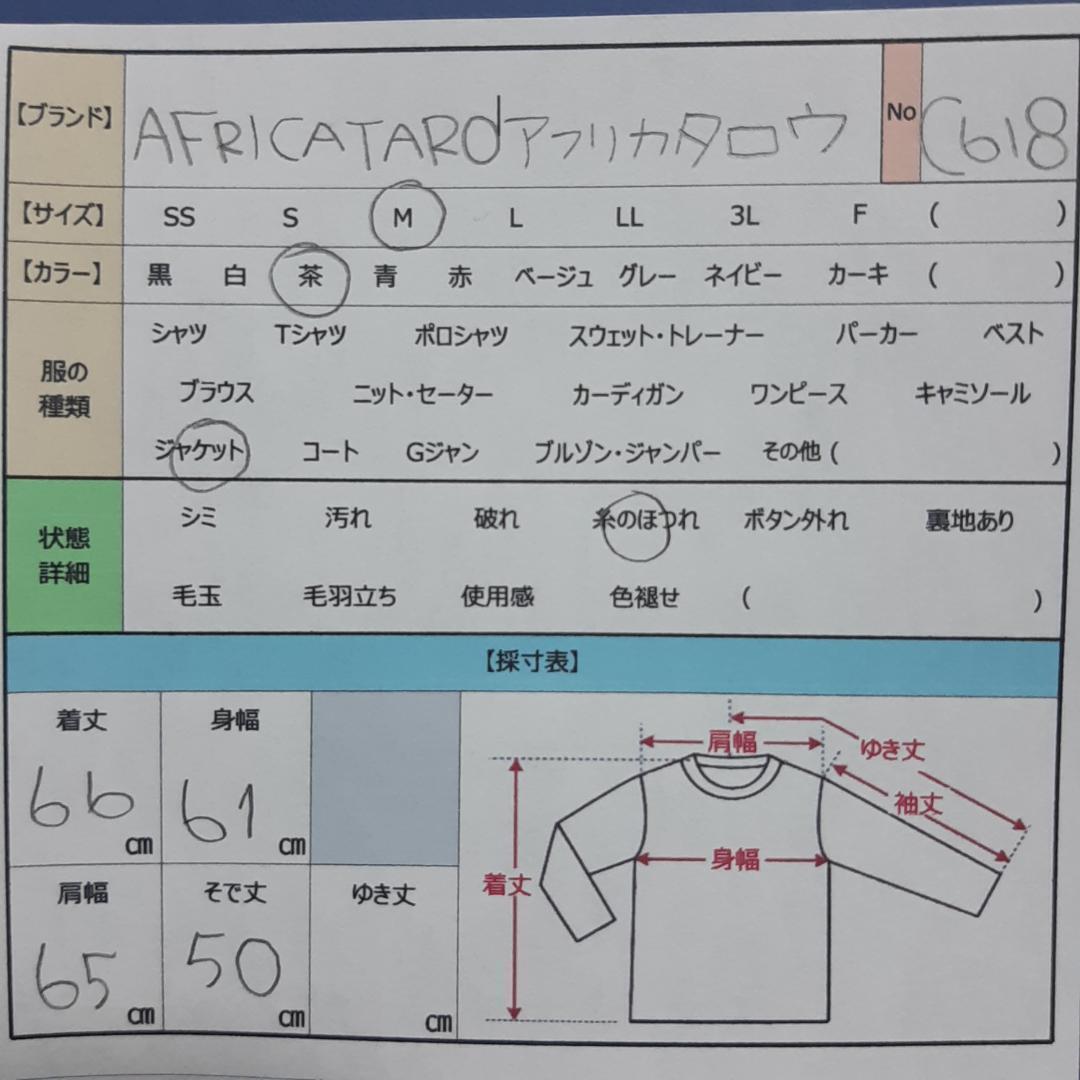 【ブランド】 AFRICATAROアフリカタロウ No C618
【サイズ】 SS S M L LL 3L F ( )
【カラー】 黒 白 茶 青 赤 ベージュ グレー ネイビー カーキ ( )
服の種類
シャツ Tシャツ ポロシャツ スウェット・トレーナー パーカー ベスト
ブラウス ニット・セーター カーディガン ワンピース キャミソール
ジャケット コート Gジャン ブルゾン・ジャンパー その他 ( )
状態詳細
シミ 汚れ 破れ 糸のほつれ ボタン外れ 裏地あり
毛玉 毛羽立ち 使用感 色褪せ ( )
【採寸表】
着丈 身幅
66 cm 61 cm
肩幅 そで丈 ゆき丈
65 cm 50 cm cm
肩幅 ゆき丈
袖丈
身幅
着丈